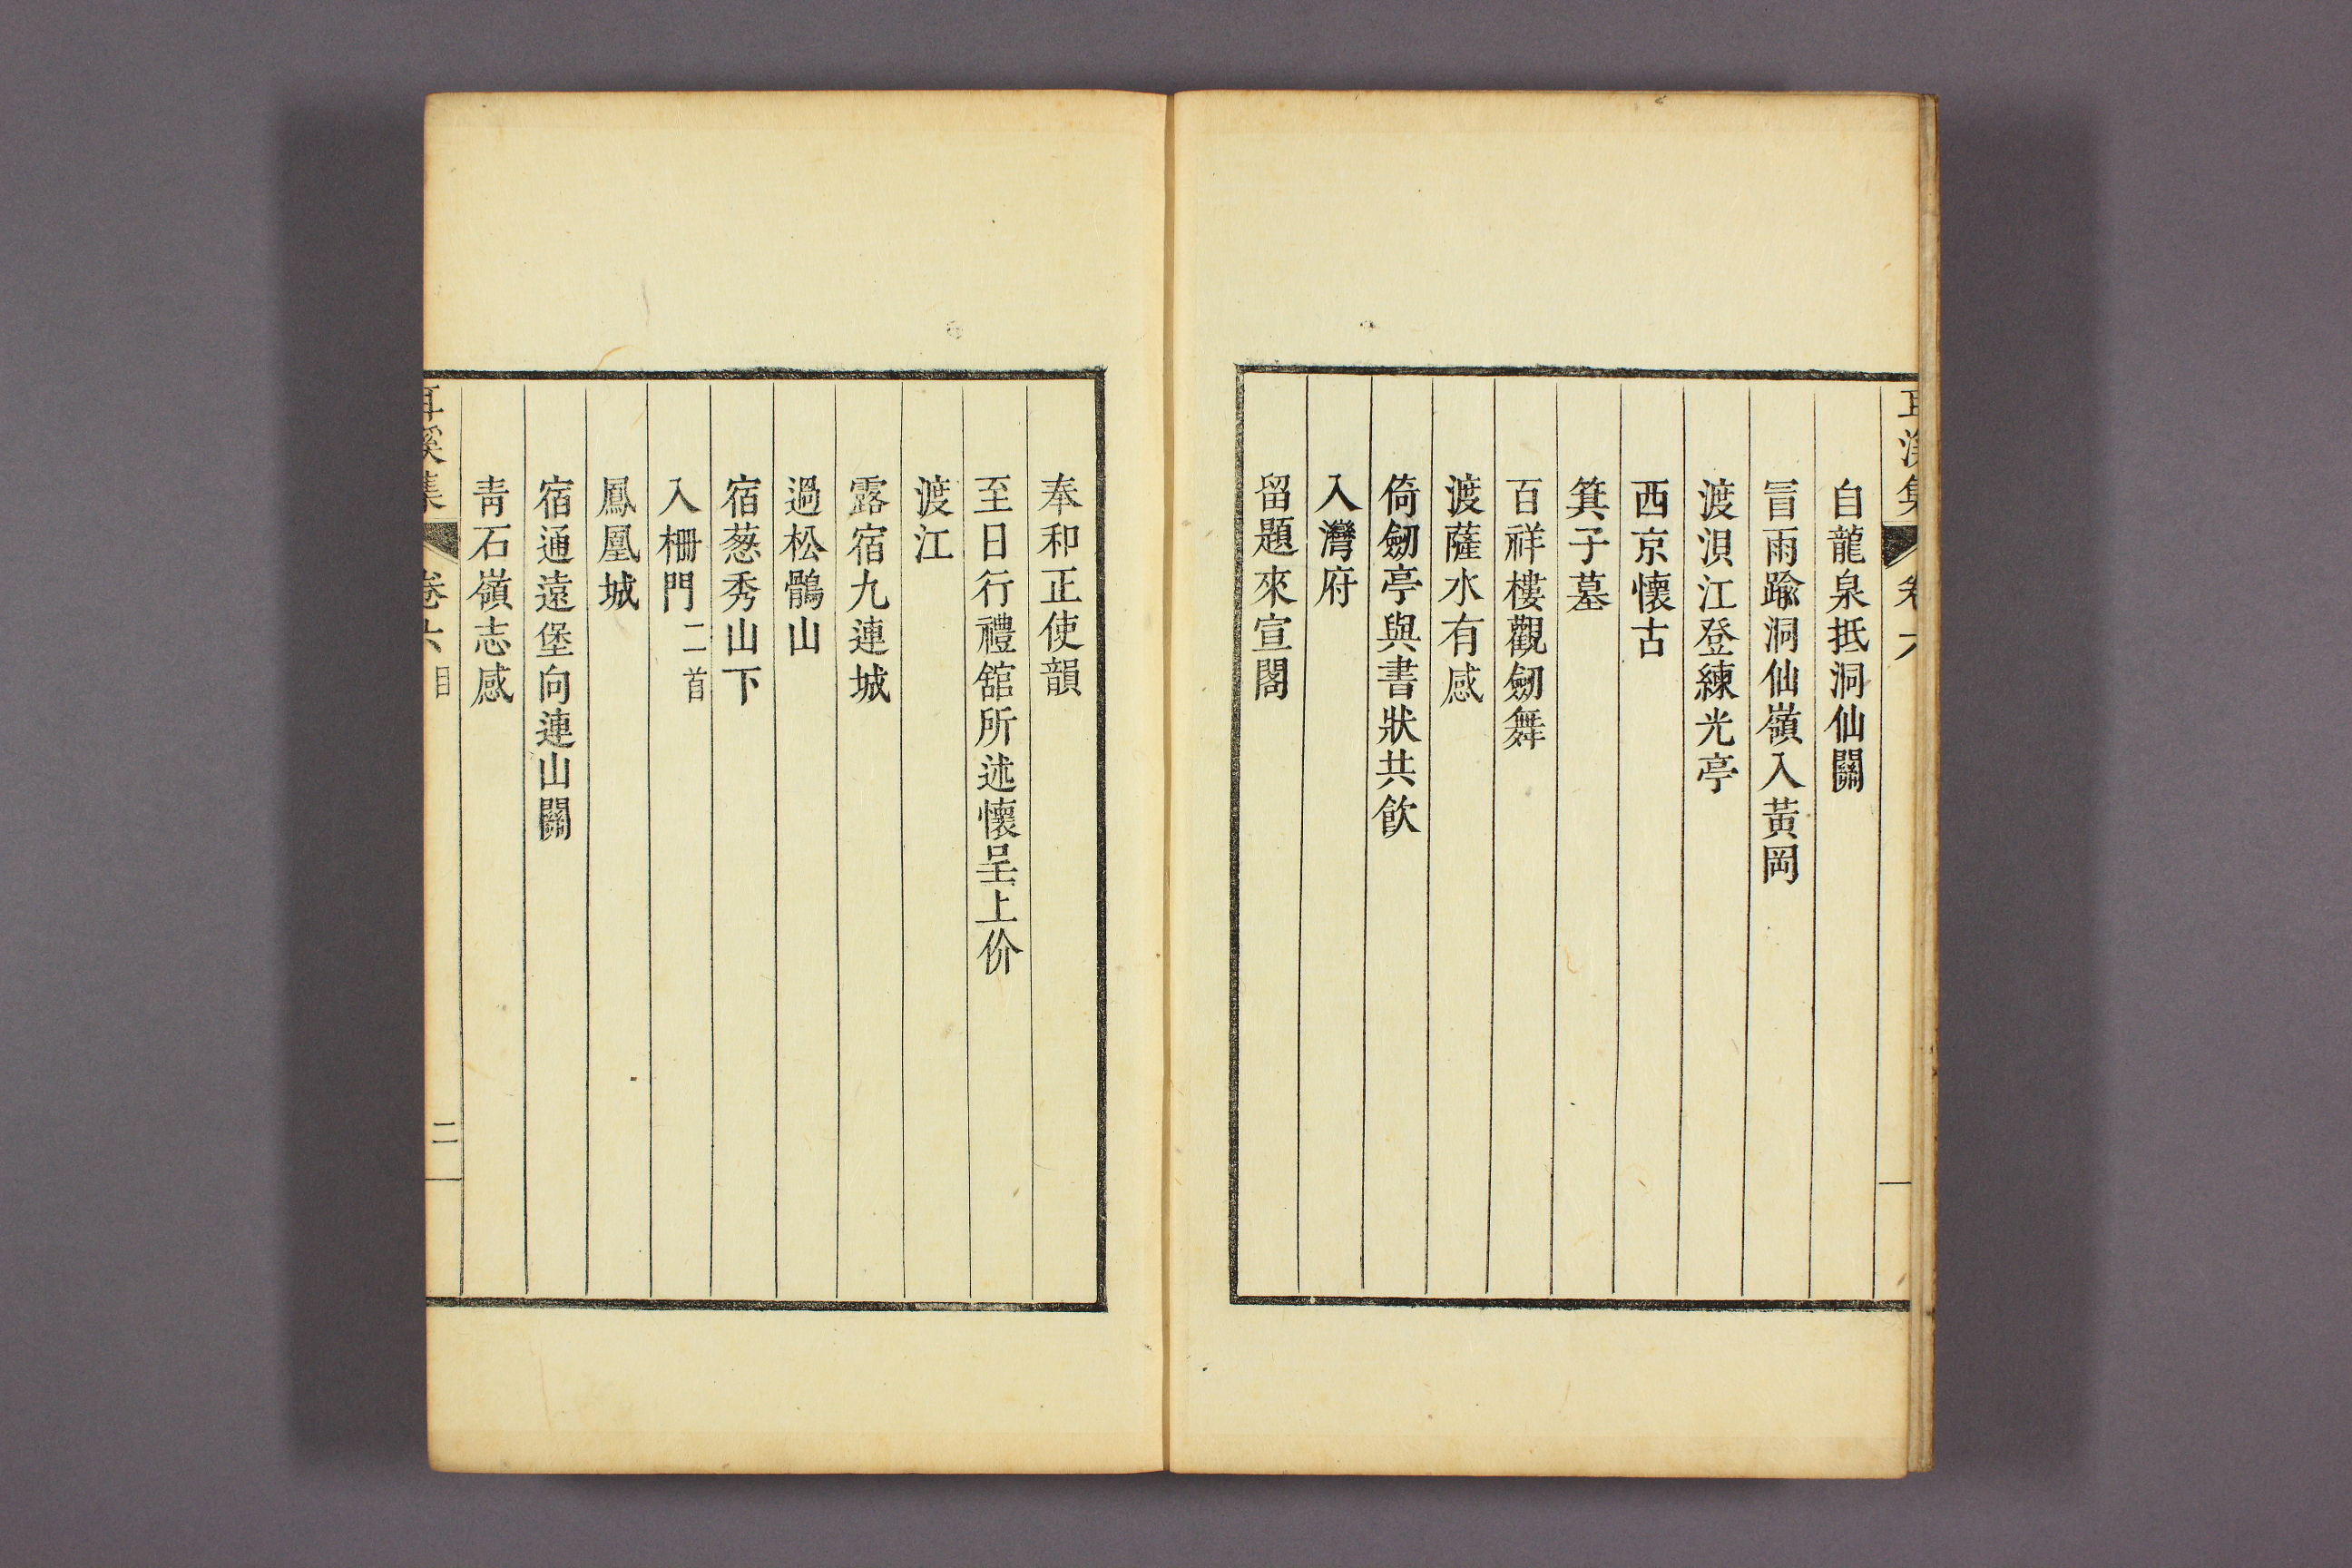 自龍泉抵洞仙關
冒雨踰洞仙嶺入黃岡
渡浿江登練光亭
西京懷古
箕子墓
百祥樓觀劒舞
渡薩水有感
倚劒亭與書狀共飮
入灣府
留題來宣閣
奉和正使韻
至日行禮舘所述懷呈上价
渡江
露宿九連城
過松鶻山
宿葱秀山下
入柵門二首
鳳凰城
宿通遠堡向連山關
靑石嶺志感
耳溪集 卷六 目 二